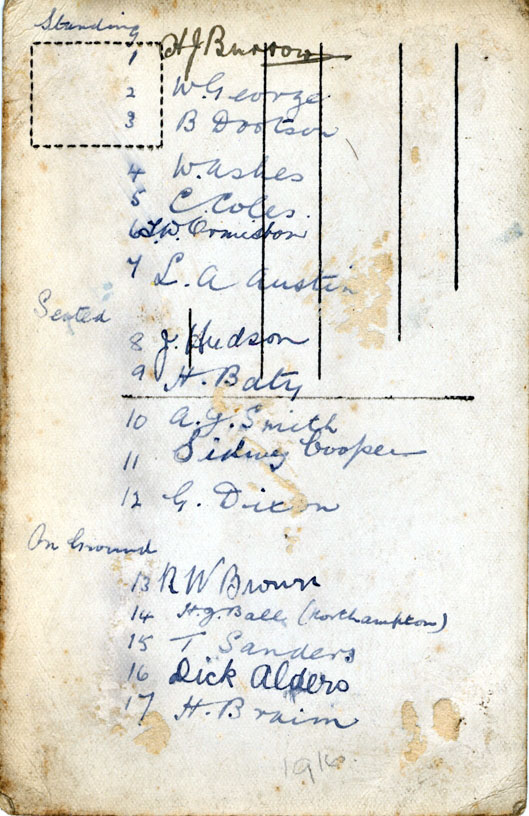 Standing
1 H J Burrow
2 W. George
3 B Dootson
4 W. Ashes
5 C. Coles.
6 T.W. Ormiston
7 L. A Austin
Seated
8 J. Hudson
9 H. Baty
10 A. J. Smith
11 Sidney Cooper
12 G. Dixon
On Ground
13 R W Brown
14 H. J. Balls (Northampton)
15 T Sanders
16 Dick Alders
17 H. Braim